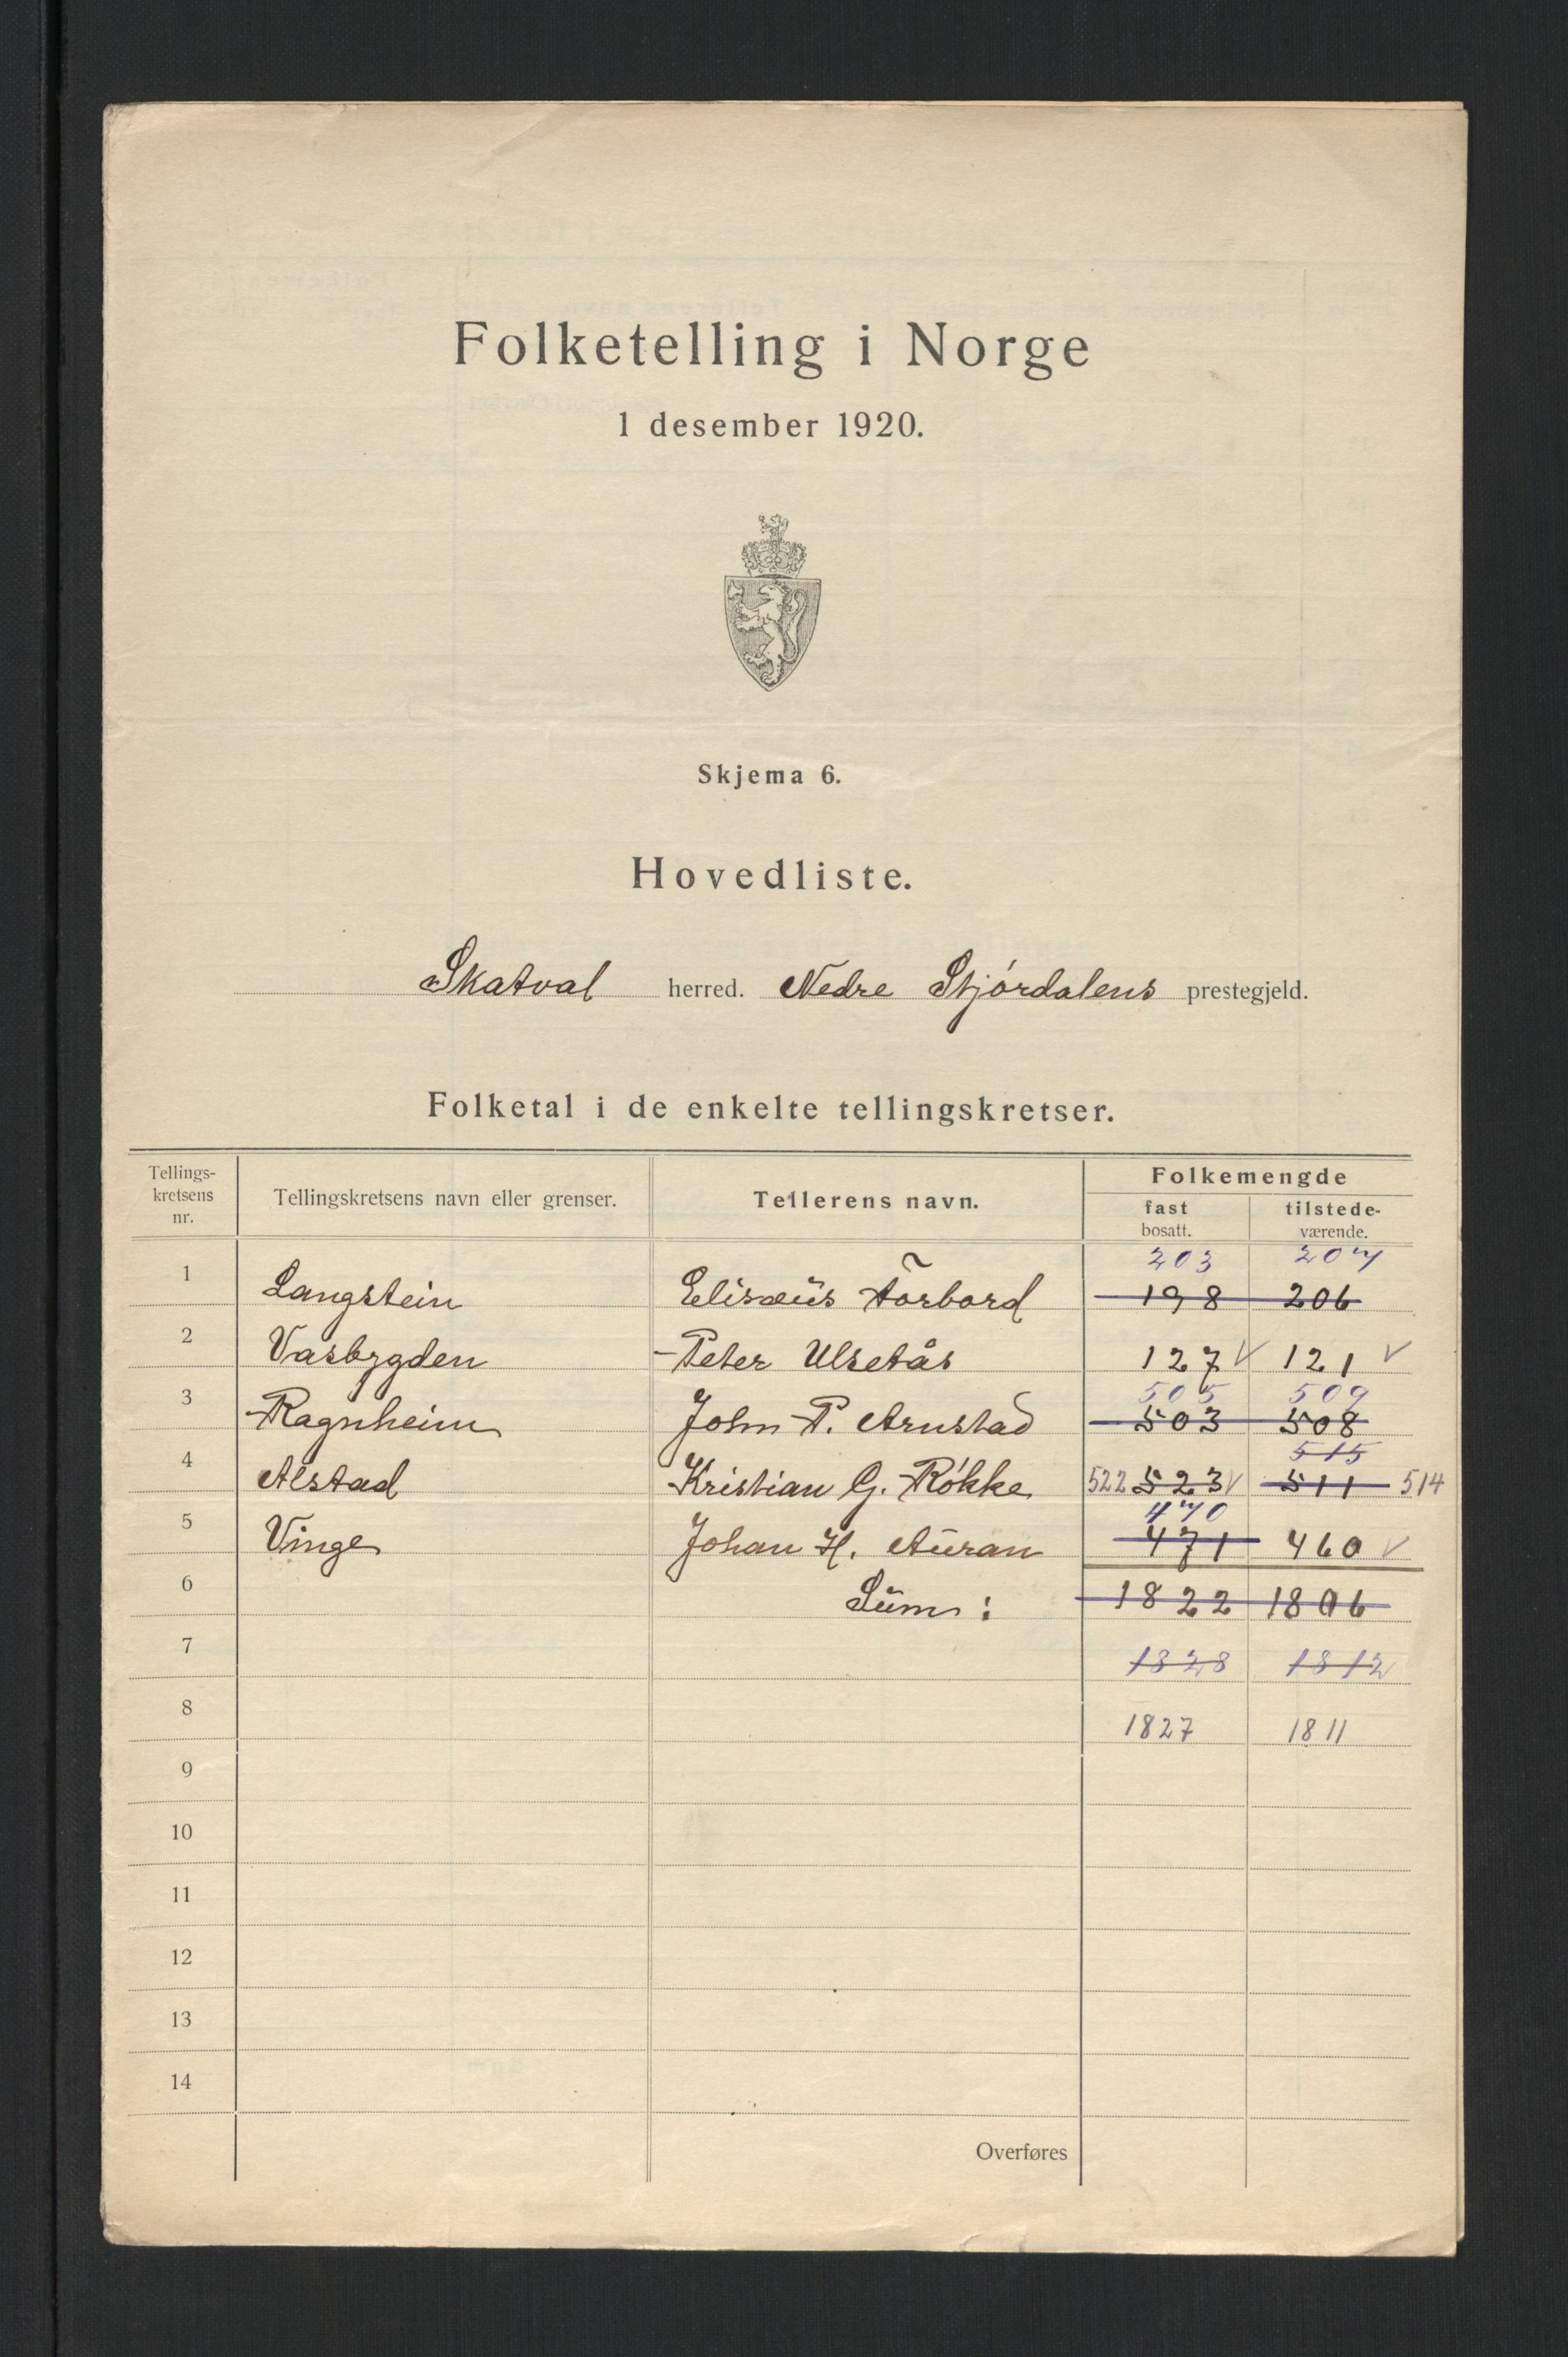 Folketelling i Norge
1 desember 1920.
Skjema 6.
Hovedliste.
Skatval herred. Nedre Stjørdalens prestegjeld.
Folketal i de enkelte tellingskretser.
Tellings-
kretsens
nr.
Tellingskretsens navn eller grenser.
Tellerens navn.
Folkemengde
fast
bosatt.
tilstede-
værende.
203 207
1 Langstein Elisæus Forbord 198 206
2 Vasbygden Peter Ulsetås 127 V 121 V
505 509
3 Ragnheim John P. Arnstad 503 508
515
4 Alstad Kristian G. Røkke 522 523 V 511 514
470
5 Vinge Johan H. Auran 471 460 V
6 Sum: 1822 1806
7 1828 1812
8 1827 1811
9
10
11
12
13
14
Overføres